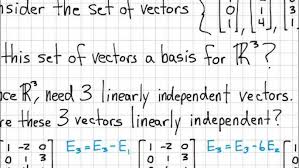 nsider the set of vectors { [ 0 1 ], [ -1 4 ], [ 3 1
this set of vectors a basis for ℝ³?
ce ℝ³, need 3 linearly independent vectors.
re these 3 vectors linearly independent?
[ 1 -2 0 E₃=E₃-E₁ [ 1 -2 0 ] E₃=E₃-6E₂ [ 1 -2
0 1 3 0 1 3 0 1